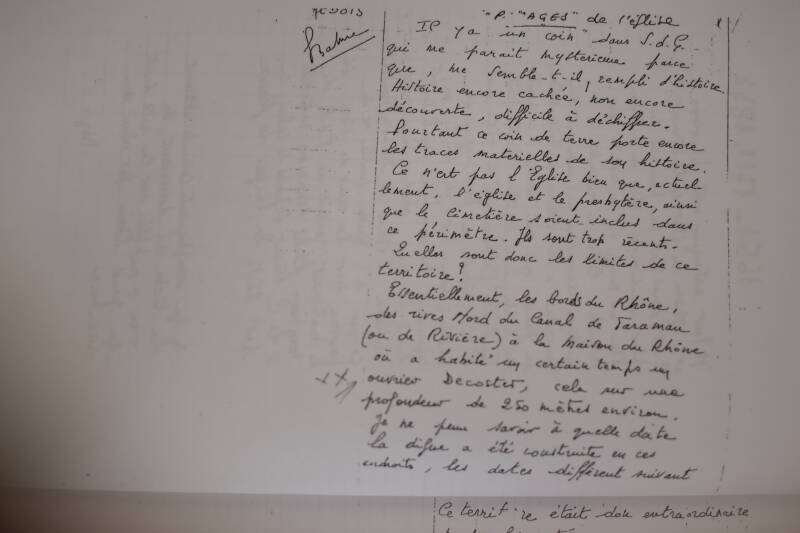 "P. "AGES" de l'église
Il y a un coin dans S.d.G.
qui me parait mysterieux parce
que, me semble-t-il, rempli d'histoire.
Histoire encore cachée, non encore
découverte, difficile à déchiffrer.
Pourtant ce coin de terre porte encore
les traces materielles de son histoire.
Ce n'est pas l'Eglise bien que, actuel
lement, l'église et le presbytère, ainsi
que le cimetière soient inclus dans
ce périmètre. Ils sont trop récents.
Quelles sont donc les limites de ce
territoire?
Essentiellement, les bords du Rhône,
des rives Nord du Canal de
(ou de Rivière) à la Maison du Rhône
où a habité un certain temps un
ouvrier Decoster, cela sur une
profondeur de 250 mètres environ.
Je ne peux savoir à quelle date
la digue a été construite en ces
endroits, les dates diffèrent suivant
Ce territ re était don extraordinaire